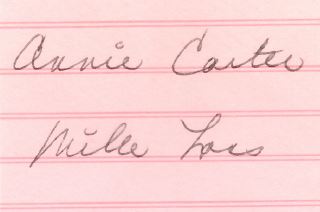 Annie Carter
Mille Lacs